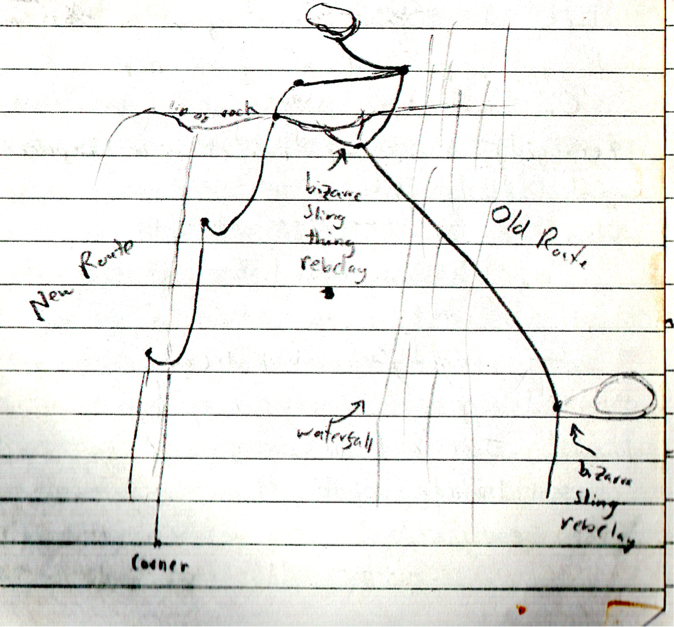 lip of rock
bizarre
sling
thing
rebelay
Old Route
New Route
waterfall
bizarre
sling
rebelay
Corner